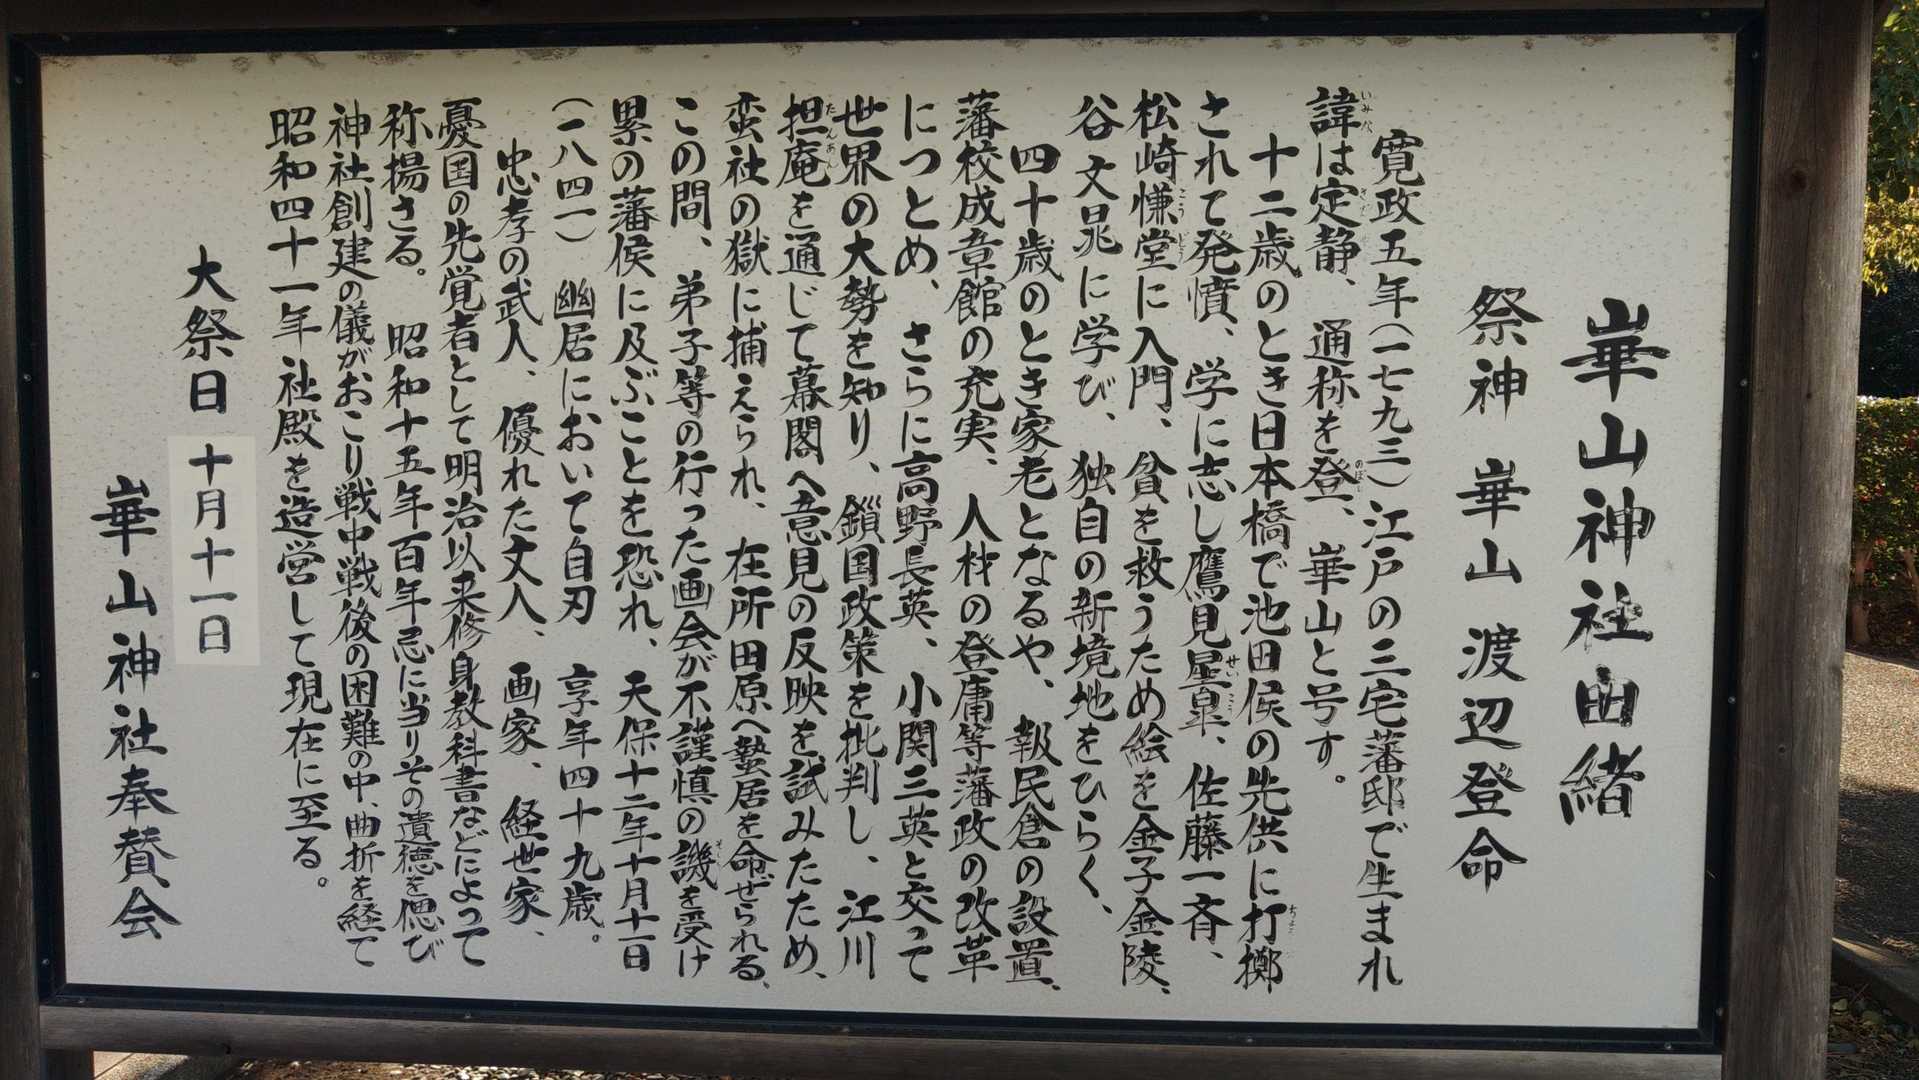 崋山神社由緒
祭神 崋山 渡辺登命
寛政五年(一七九三)江戸の三宅藩邸で生まれ
諱は定静、通称を登、崋山と号す。
十二歳のとき日本橋で池田侯の先供に打擲
されて発憤、学に志し鷹見星皐、佐藤一斉、
松崎慊堂に入門、貧を救うため絵を金子金陵、
谷文晁に学び、独自の新境地をひらく、
四十歳のとき家老となるや、報民倉の設置、
藩校成章館の充実、人材の登庸等藩政の改革
につとめ、さらに高野長英、小関三英と交って
世界の大勢を知り、鎖国政策を批判し、江川
担庵を通じて幕閣へ意見の反映を試みたため、
蛮社の獄に捕えられ、在所田原へ蟄居を命ぜられる、
この間、弟子等の行った画会が不謹慎の譏を受け
累の藩侯に及ぶことを恐れ、天保十二年十月十一日
(一八四一)幽居において自刃 享年四十九歳。
忠孝の武人、優れた文人、画家、経世家、
憂国の先覚者として明治以来修身教科書などによって
称揚さる。昭和十五年百年忌に当りその遺徳を偲び
神社創建の儀がおこり戦中戦後の困難の中、曲折を経て
昭和四十一年社殿を造営して現在に至る。
大祭日 十月十一日
崋山神社奉賛会